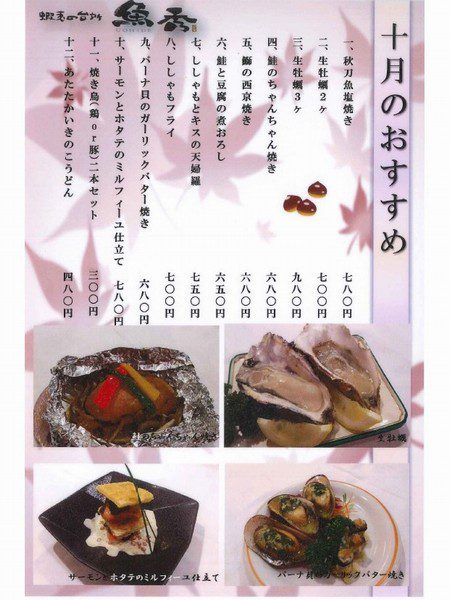 蝦夷の台所
魚秀
十月のおすすめ
一、秋刀魚塩焼き 七八〇円
二、生牡蠣2ヶ 七〇〇円
三、生牡蠣3ヶ 九八〇円
四、鮭のちゃんちゃん焼き 六八〇円
五、鰤の西京焼き 六八〇円
六、鮭と豆腐の煮おろし 六五〇円
七、ししゃもとキスの天婦羅 七五〇円
八、ししゃもフライ 七〇〇円
九、パーナ貝のガーリックバター焼き 六八〇円
十、サーモンとホタテのミルフィーユ仕立て 七八〇円
十一、焼き鳥(鶏or豚)二本セット 三〇〇円
十二、あたたかいきのこうどん 四八〇円
生牡蠣
サーモンとホタテのミルフィーユ仕立て
パーナ貝のガーリックバター焼き